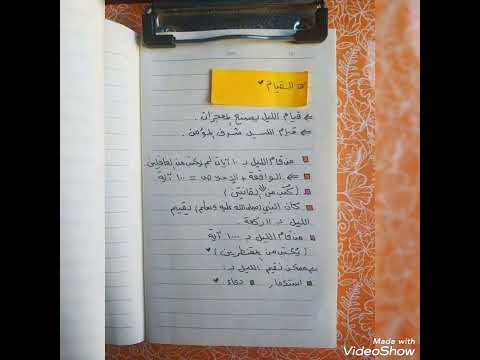 القيام ♥
قيام الليل يصنع المعجزات.
قيام الليل شرف المؤمن.
من قام الليل بـ ١٠ آيات لم يكتب من الغافلين
الواقعة + الإخلاص = ١٠٠ آية
( كُتب من القانتين )
كان النبي (صلى الله عليه وسلم) يقيم
الليل بـ الركعة.
من قام الليل بـ ١٠٠٠ آية
( يكتب من المقنطرين ) ♥
ممكن نقيم الليل بـ:
استغفار دعاء ♥
Made with
VideoShow